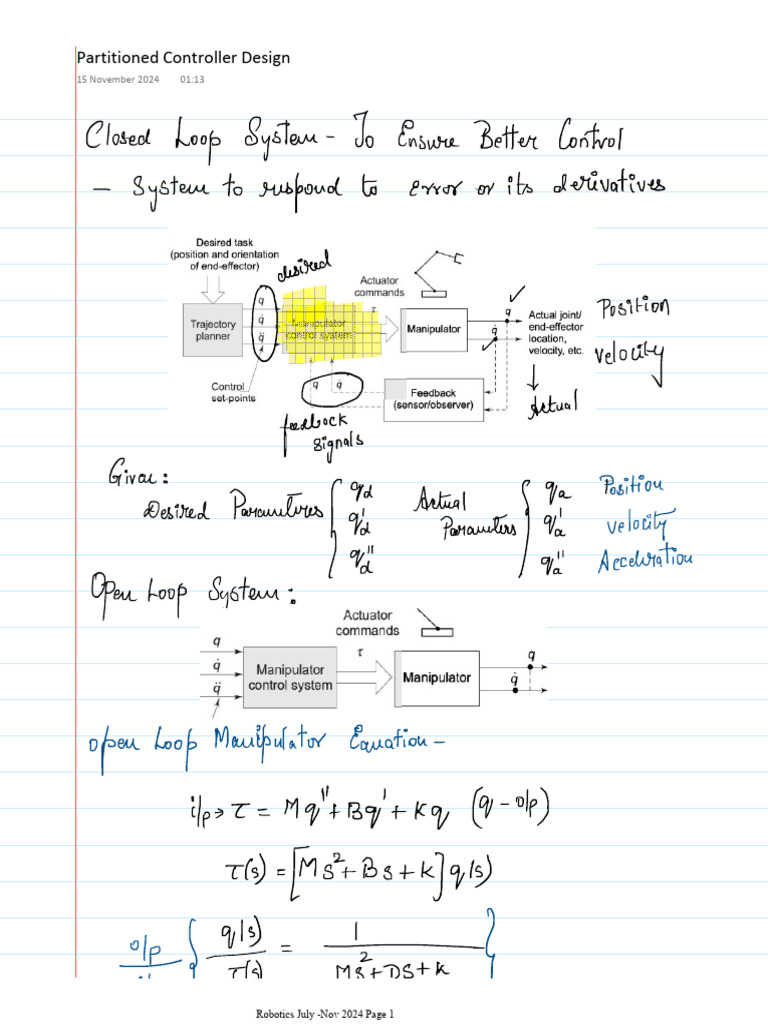 Partitioned Controller Design
15 November 2024 01:13
Closed Loop System - To Ensure Better Control
- System to respond to error or its derivatives
Desired task
(position and orientation
of end-effector)
desired
Actuator
commands
q
q̇
q̈
τ
Trajectory
planner
Manipulator
control system
Manipulator
q
q̇
Actual joint/
end-effector
location,
velocity, etc.
Position
velocity
Actual
Control
set-points
q q̇
Feedback
(sensor/observer)
feedback
signals
Given:
Desired Parameters { qd
q'd
q''d
Actual
Parameters { qa Position
q'a velocity
q''a Acceleration
Open Loop System:
Actuator
commands
q
q̇
q̈
τ
Manipulator
control system
Manipulator
q
q̇
open Loop Manipulator Equation -
i/p → τ = Mq'' + Bq' + Kq (q - o/p)
τ(s) = [Ms² + Bs + K] q(s)
o/p { q(s) / τ(s) = 1 / Ms² + DS + K }
Robotics July -Nov 2024 Page 1